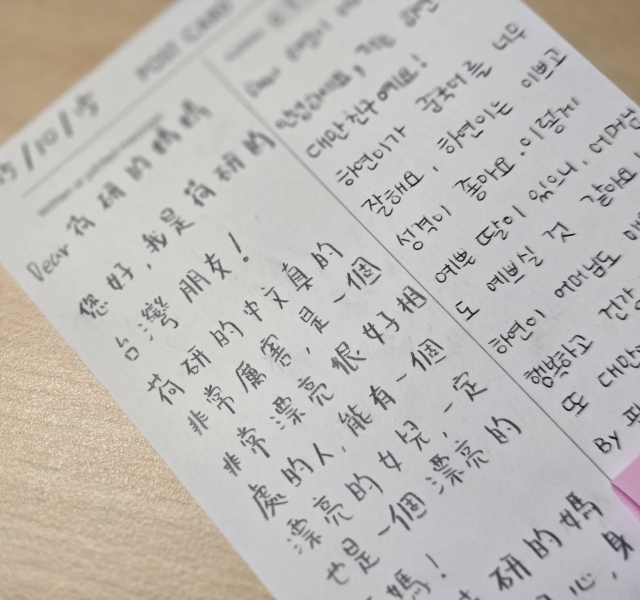 POST CARD
15/10/15
Dear 荷研的媽媽
您好,我是荷研的
台灣朋友!
荷研的中文真的
非常厲害,是一個
非常漂亮很好相
處的人,能有一個
漂亮的女兒,一定
也是一個漂亮的
媽!
研的媽
心,身
Dear
안녕하세요, 저는
대만친구예요!
하연이가 중국어를 너무
잘해요, 하연이는 이쁘고
성격이 좋아요. 이렇게
예쁜 딸이 있으니, 어머님
도 예쁘실 것 같아요!
하연이 어머님도
행복하고 건강
또 대만
By